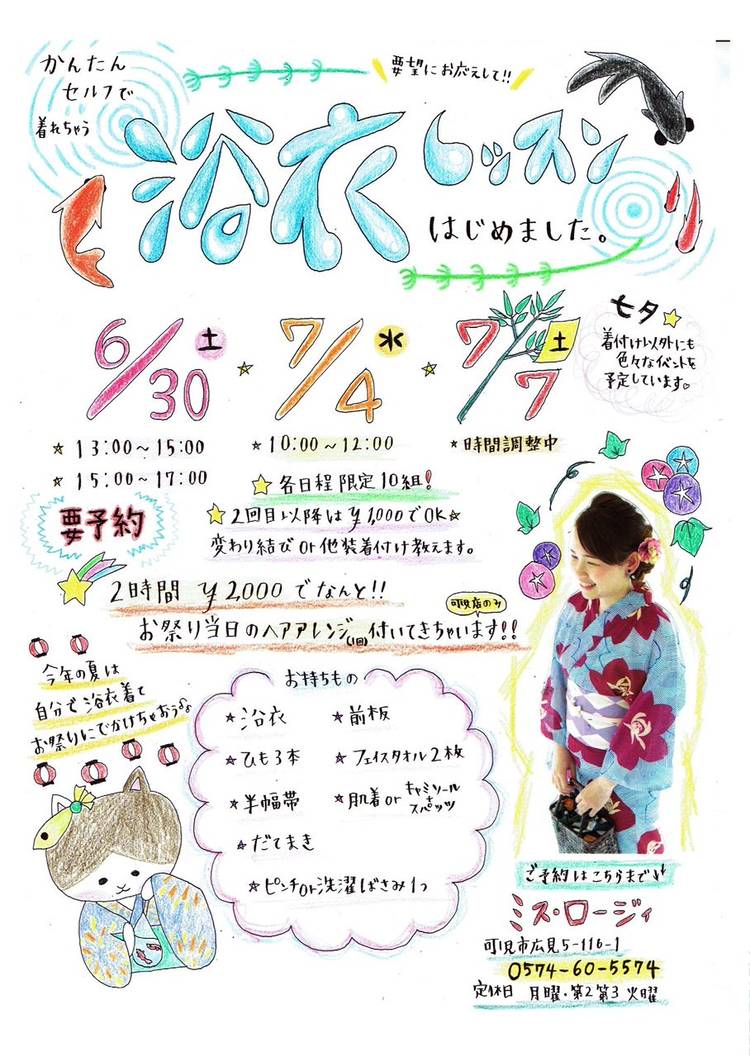 かんたん
セルフで
着れちゃう
要望にお応えして!!
浴衣レッスン
はじめました。
6/30 土
7/4 水
7/7 土
七夕
着付け以外にも
色々なイベントを
予定しています
★13:00～15:00
★15:00～17:00
★10:00～12:00
★時間調整中
要予約
★各日程限定10組!
★2回目以降は¥1,000でOK★
変わり結びor他装着付け教えます。
2時間 ¥2,000でなんと!!
可児店のみ
お祭り当日のヘアアレンジ(1回)付いてきちゃいます!!
今年の夏は
自分で浴衣着て
お祭りにでかけちゃおう♪
お持ちもの
★浴衣
★ひも3本
★半幅帯
★だてまき
★ピンチor洗濯ばさみ1つ
★前板
★フェイスタオル2枚
★肌着orキャミソール+スパッツ
ご予約はこちらまで
ミス・ロージィ
可児市広見5-116-1
0574-60-5574
定休日 月曜・第2第3火曜